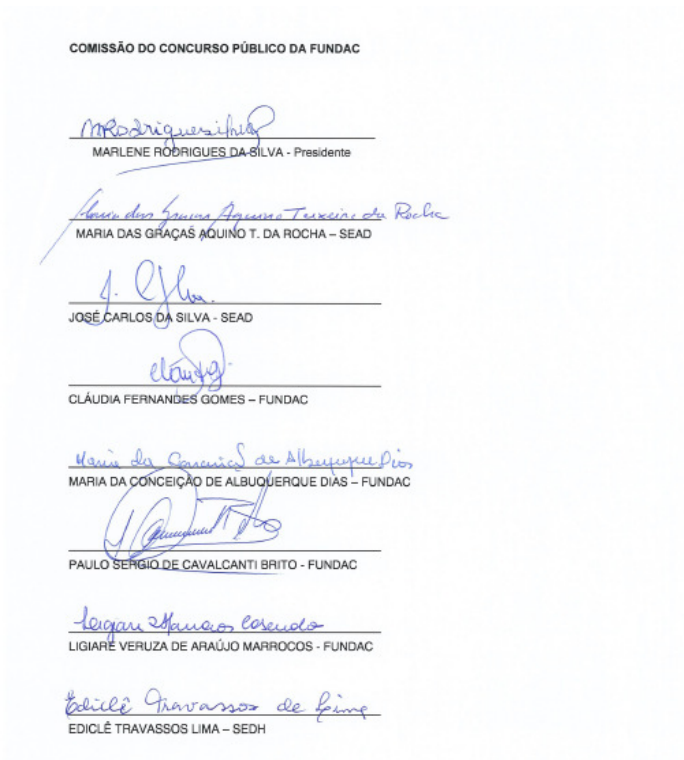 COMISSÃO DO CONCURSO PÚBLICO DA FUNDAC
MRodriguesilva
MARLENE RODRIGUES DA SILVA - Presidente
Maria das Graças Aquino Teixeira da Rocha
MARIA DAS GRAÇAS AQUINO T. DA ROCHA – SEAD
JOSÉ CARLOS DA SILVA - SEAD
CLÁUDIA FERNANDES GOMES – FUNDAC
Maria da Conceição de Albuquerque Dias
MARIA DA CONCEIÇÃO DE ALBUQUERQUE DIAS – FUNDAC
PAULO SERGIO DE CAVALCANTI BRITO - FUNDAC
LIGIARE VERUZA DE ARAÚJO MARROCOS - FUNDAC
Ediclê Travassos de Lima
EDICLÊ TRAVASSOS LIMA – SEDH